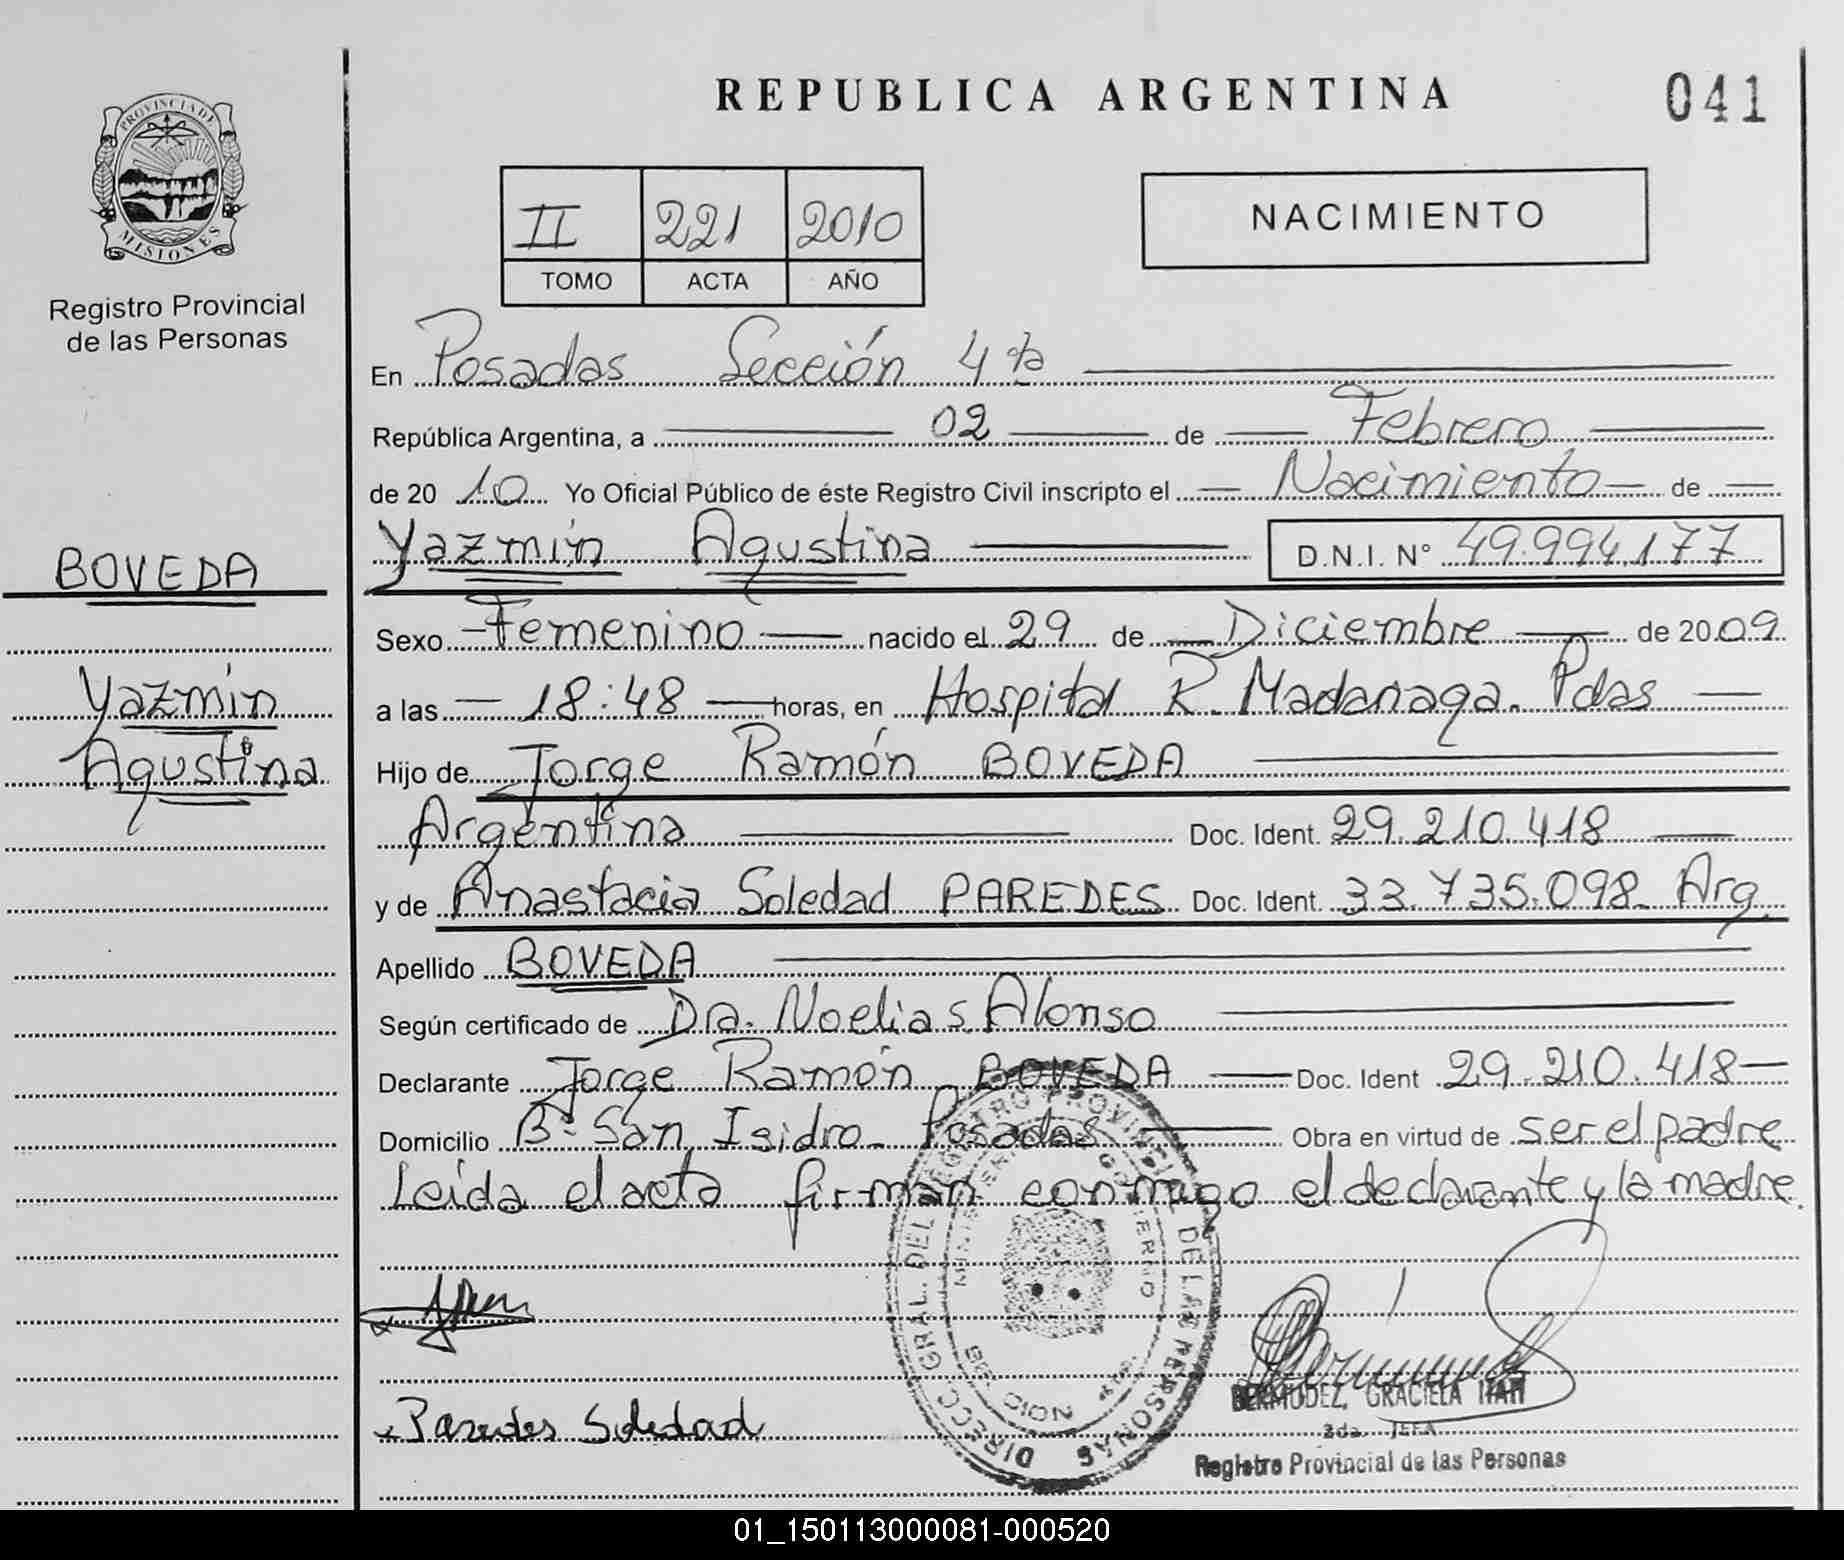 REPUBLICA ARGENTINA
041
PROVINCIA DE
MISIONES
Registro Provincial
de las Personas
II 221 2010
TOMO ACTA AÑO
NACIMIENTO
En Posadas Sección 4ta
República Argentina, a 02 de Febrero
de 20 10 Yo Oficial Público de éste Registro Civil inscripto el Nacimiento de
Yazmín Agustina D.N.I. N° 49.994.177
BOVEDA
Yazmín
Agustina
Sexo Femenino nacido el 29 de Diciembre de 20 09
a las 18:48 horas, en Hospital R. Madanaga. Pdas
Hijo de Jorge Ramón BOVEDA
Argentina Doc. Ident. 29.210.418
y de Anastacia Soledad PAREDES Doc. Ident. 33.735.098. Arg.
Apellido BOVEDA
Según certificado de Dra. Noelia S. Alonso
Declarante Jorge Ramón BOVEDA Doc. Ident 29.210.418
Domicilio B° San Isidro Posadas Obra en virtud de ser el padre
Leída el acta firman conmigo el declarante y la madre.
DIRECC. GRAL. DEL REGISTRO PROVINCIAL DE LAS PERSONAS
Paredes Soledad
BERMUDEZ, GRACIELA
2da. JEFA
Registro Provincial de las Personas
01_150113000081-000520